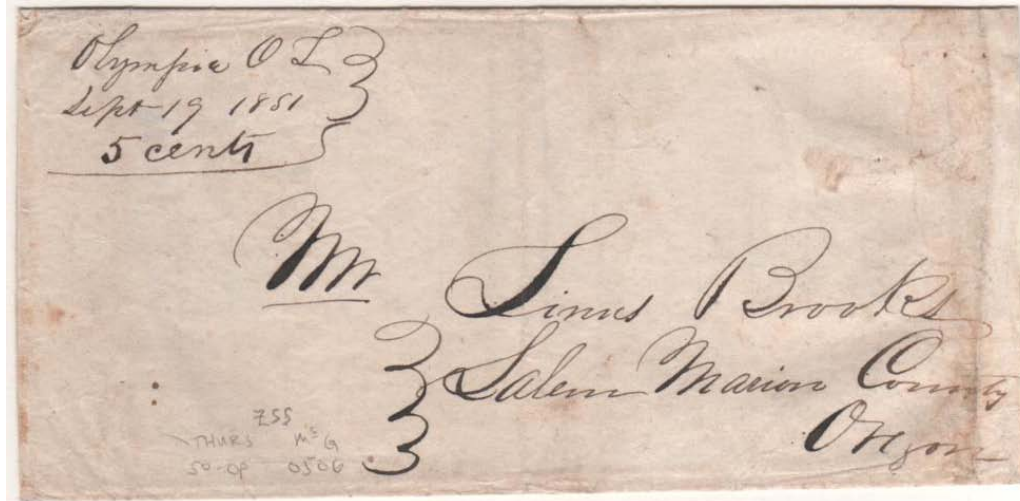 Olympia O T
Sept 19 1851
5 cents
Mr Linus Brooks
Salem Marion County
Oregon
ZSS
THURS McG
50-OP 0506